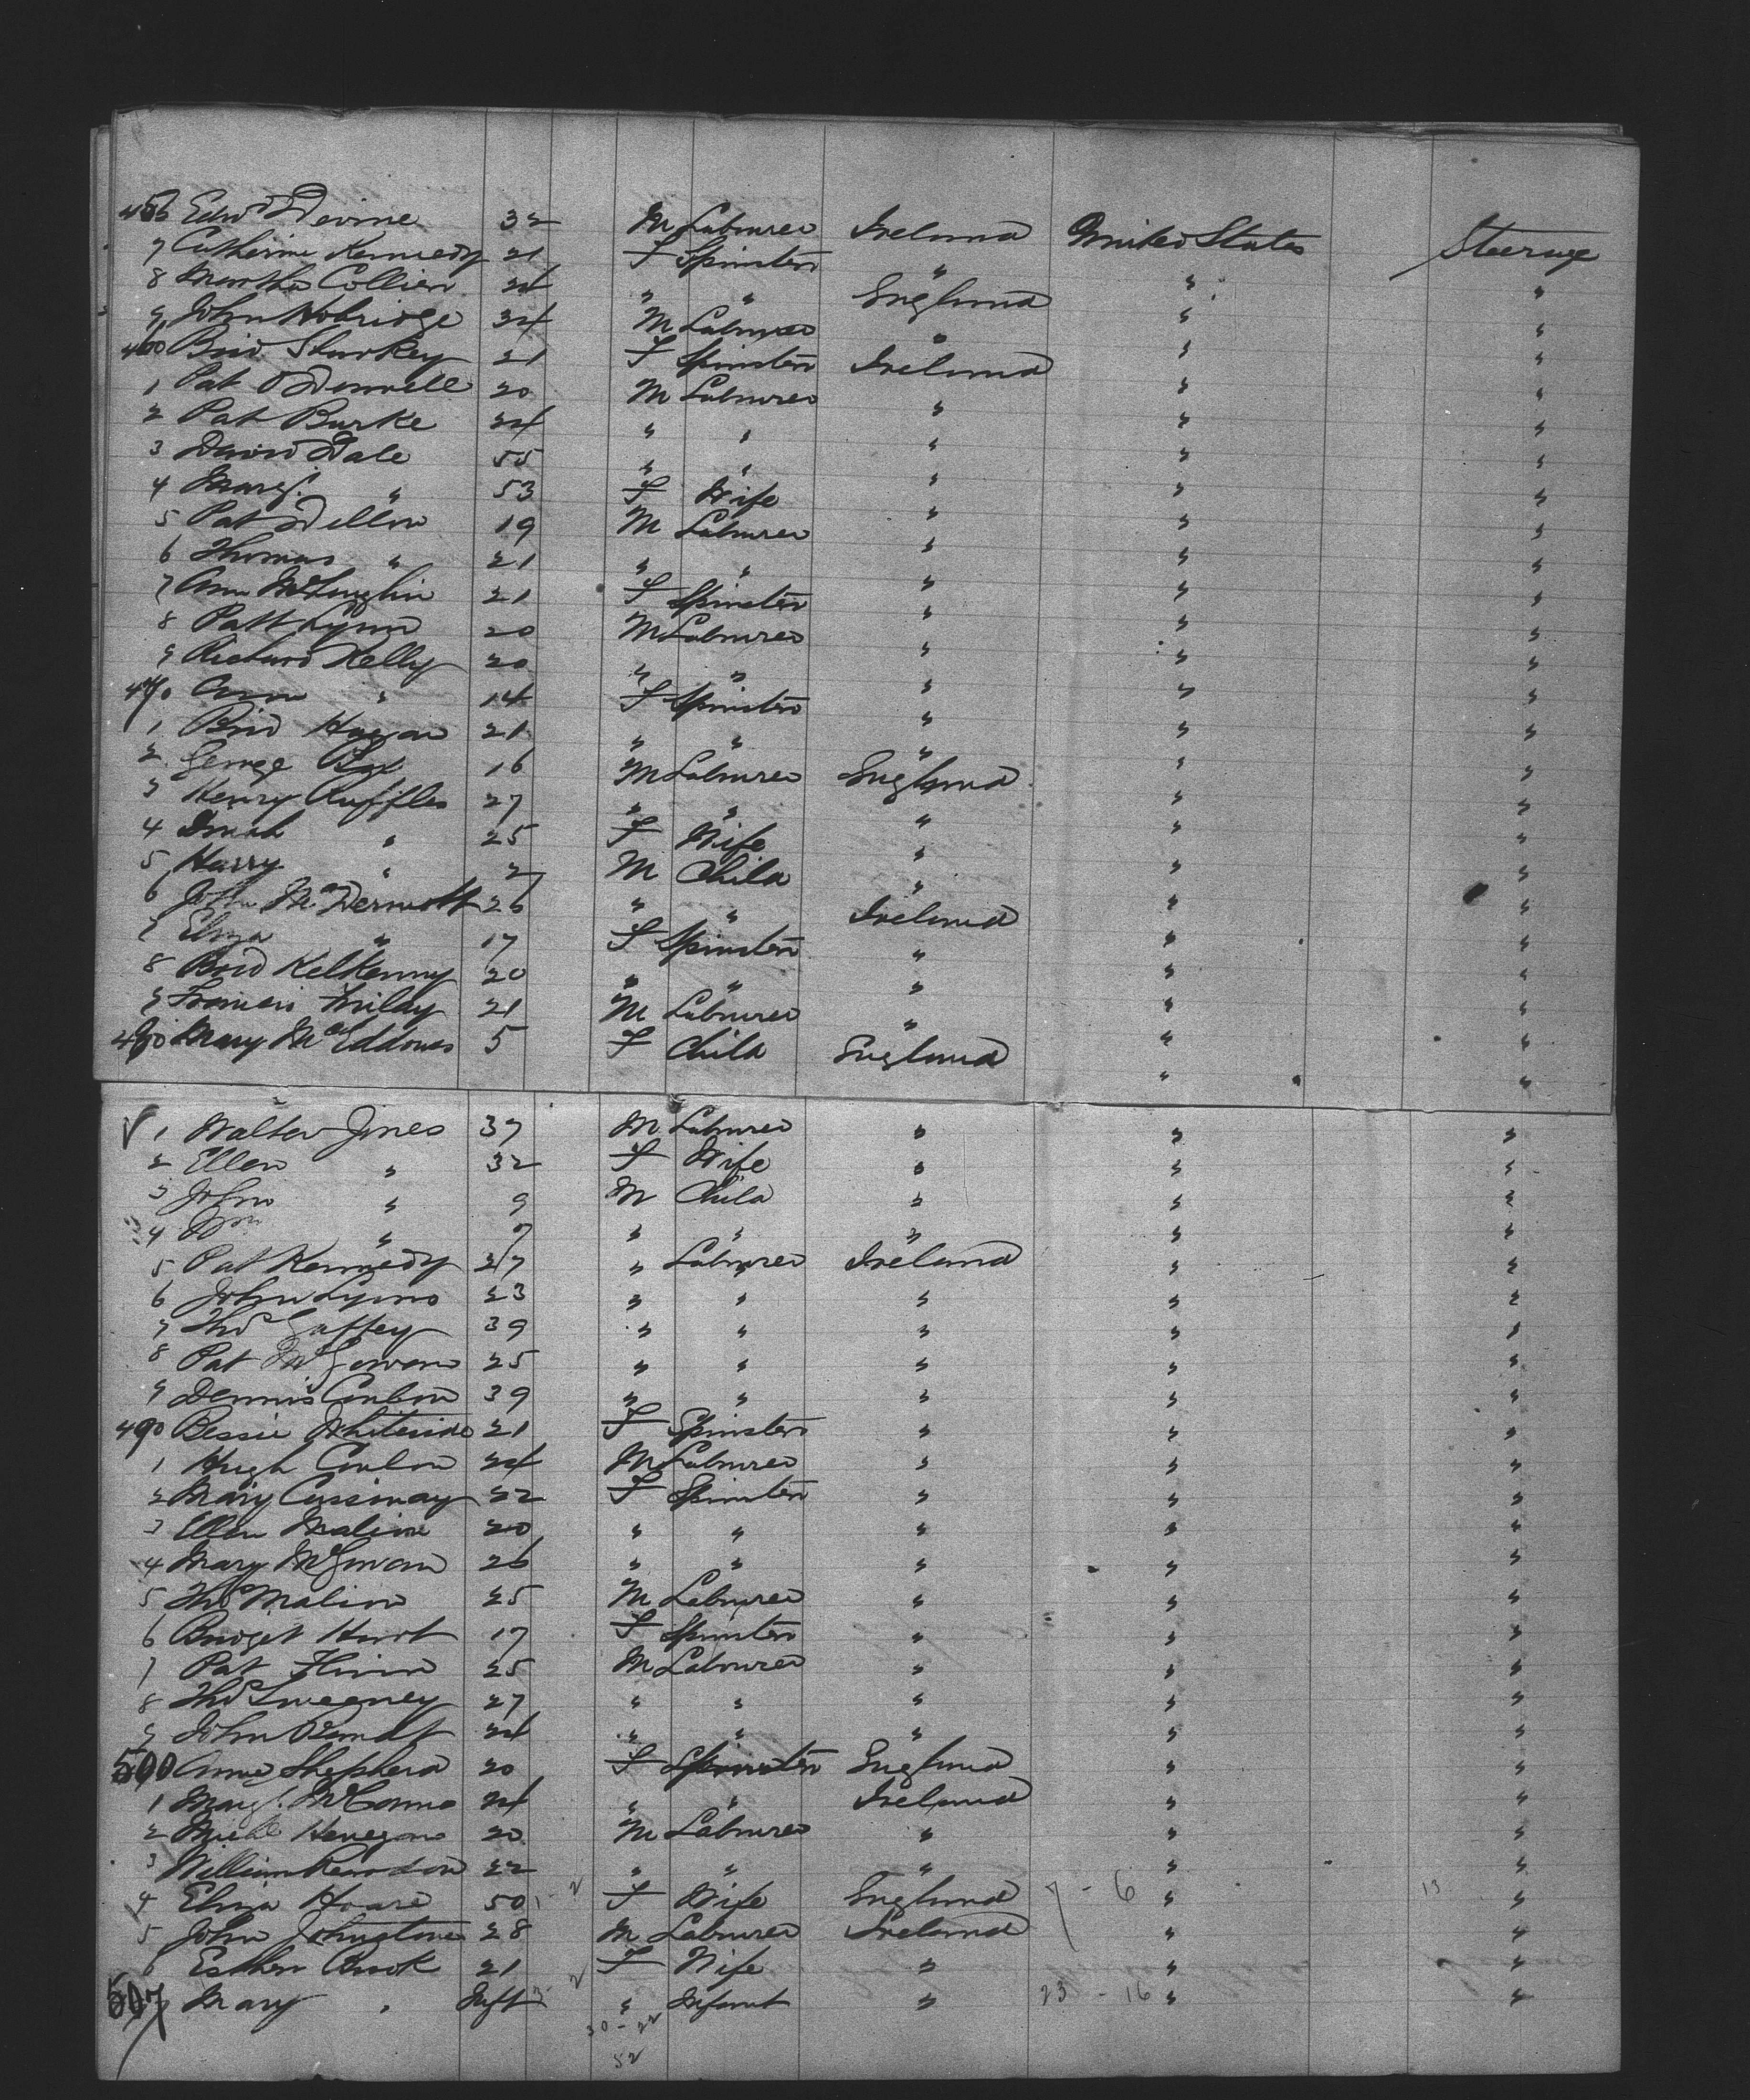 456 Edwd Devine 32 M Labourer Ireland United States Steerage
7 Catherine Kennedy 21 F Spinster " " "
8 Martha Collier 24 " " England " "
9 John 34 M Labourer " " "
460 Brid Sharkey 21 F Spinster Ireland " "
1 Pat O'Donnell 20 M Labourer " " "
2 Pat Burke 24 " " " " "
3 David Dale 55 " " " " "
4 Margt " 53 F Wife " " "
5 Pat Dillon 19 M Labourer " " "
6 Thomas " 21 " " " " "
7 Ann McLoughlin 21 F Spinster " " "
8 Patt Lynn 20 M Labourer " " "
9 Richard Kelly 20 " " " " "
470 Ann " 14 F Spinster " " "
1 Brid Hagan 21 " " " " "
2 George 16 M Labourer England " "
3 Henry Ruffles 27 " " " " "
4 " 25 F Wife " " "
5 Harry " 2 M Child " " "
6 John McDermott 26 " " Ireland " "
7 Eliza " 17 F Spinster " " "
8 Brid Kelkenny 20 " " " " "
9 Francis 21 M Labourer " " "
480 Mary McEddows 5 F Child England " "
1 Walter Jones 37 M Labourer " " "
2 Ellen " 32 F Wife " " "
3 John " 9 M Child " " "
4 Wm " 7 " " " " "
5 Pat Kennedy 27 " Labourer Ireland " "
6 John Lyons 23 " " " " "
7 Thos Gaffey 39 " " " " "
8 Pat McGowan 25 " " " " "
9 Dennis Conlon 39 " " " " "
490 Bessie Whiteside 21 F Spinster " " "
1 Hugh Conlon 24 M Labourer " " "
2 Mary 22 F Spinster " " "
3 Ellen Malone 20 " " " " "
4 Mary McGowan 26 " " " " "
5 Thos Malion 25 M Labourer " " "
6 Bridget Hart 17 F Spinster " " "
7 Pat Flinn 25 M Labourer " " "
8 Thos Sweeney 27 " " " " "
9 John 24 " " " " "
500 Annie Shepherd 20 F Spinster England " "
1 Margt 24 " " Ireland " "
2 Michl Henegan 20 M Labourer " " "
3 William Reardon 22 " " " " "
4 Eliza Hoare 50 1 - 2 F Wife England 7 - 6 " 13 "
5 John Johnstone 28 M Labourer Ireland " "
6 Esther Cusok 21 F Wife " " "
507 Mary " Inft " Infant " 23 - 16 " "
30 - 22
52